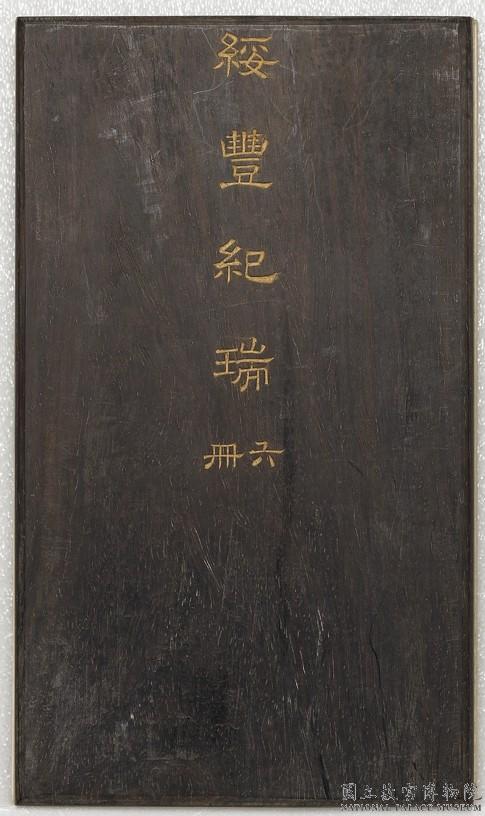 綏豐紀瑞
六冊
國立故宮博物院
NATIONAL PALACE MUSEUM